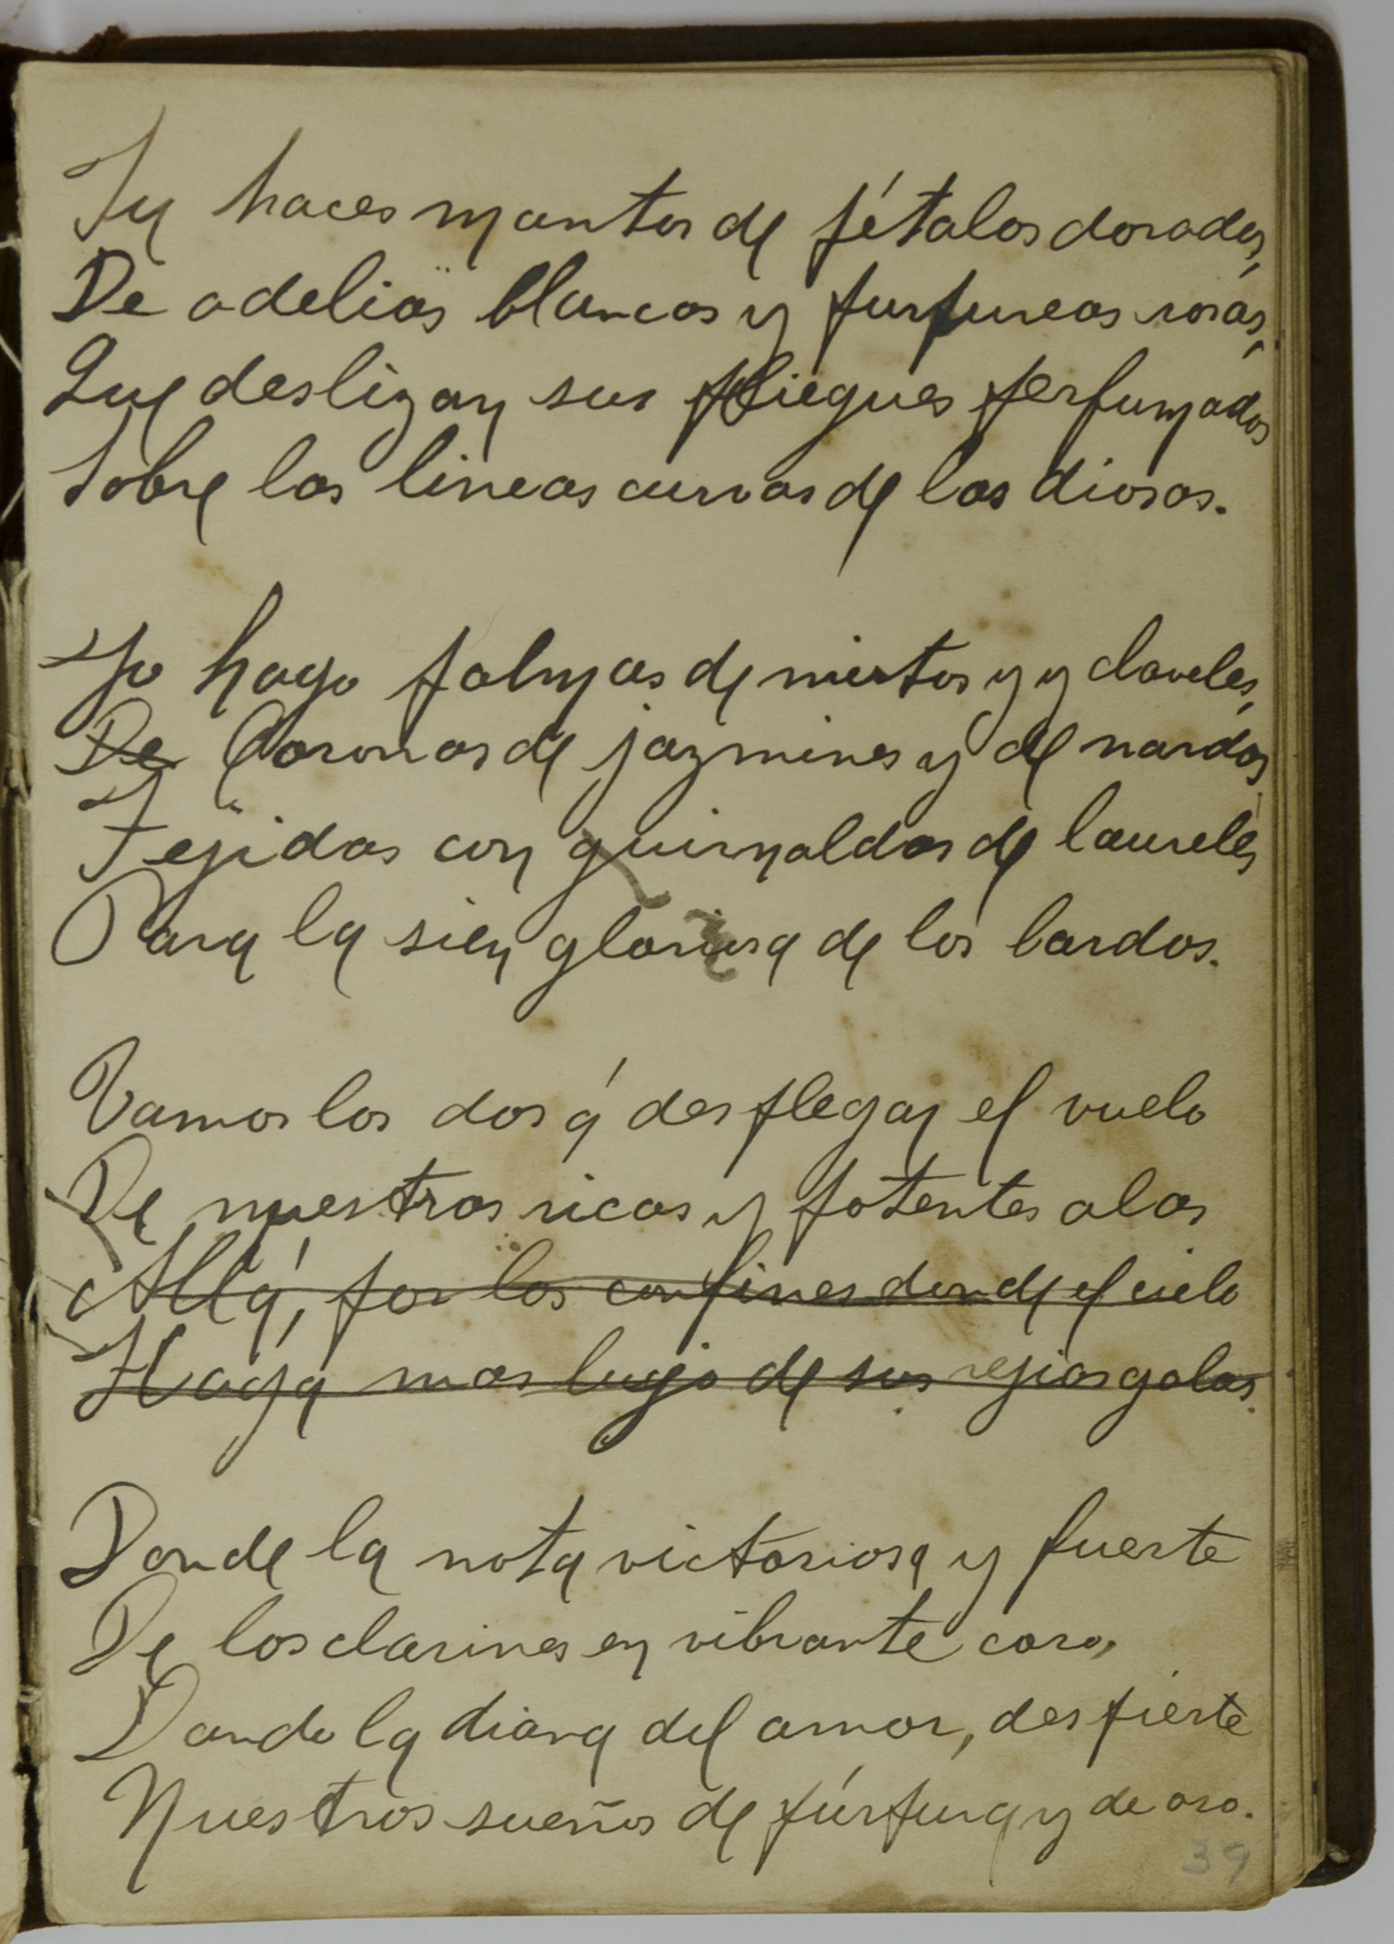 Tu haces mantos de pétalos dorados,
De adelias blancas y purpureas rosas,
Que deslizan sus pliegues perfumados
Sobre las lineas curvas de las diosas.
Yo hago palmas de mirtos y y claveles,
De Coronas de jazmines y de nardos
Tejidas con guirnaldas de laureles
Para la sien gloriosa de los bardos.
Vamos los dos á desplegar el vuelo
De nuestras ricas y potentes alas
Allá, por los confines donde el cielo
Haga mas lujo de sus regias galas.
Donde la nota victoriosa y fuerte
De los clarines en vibrante coro,
Dando la diana del amor, despierte
Nuestros sueños de púrpura y de oro.
39